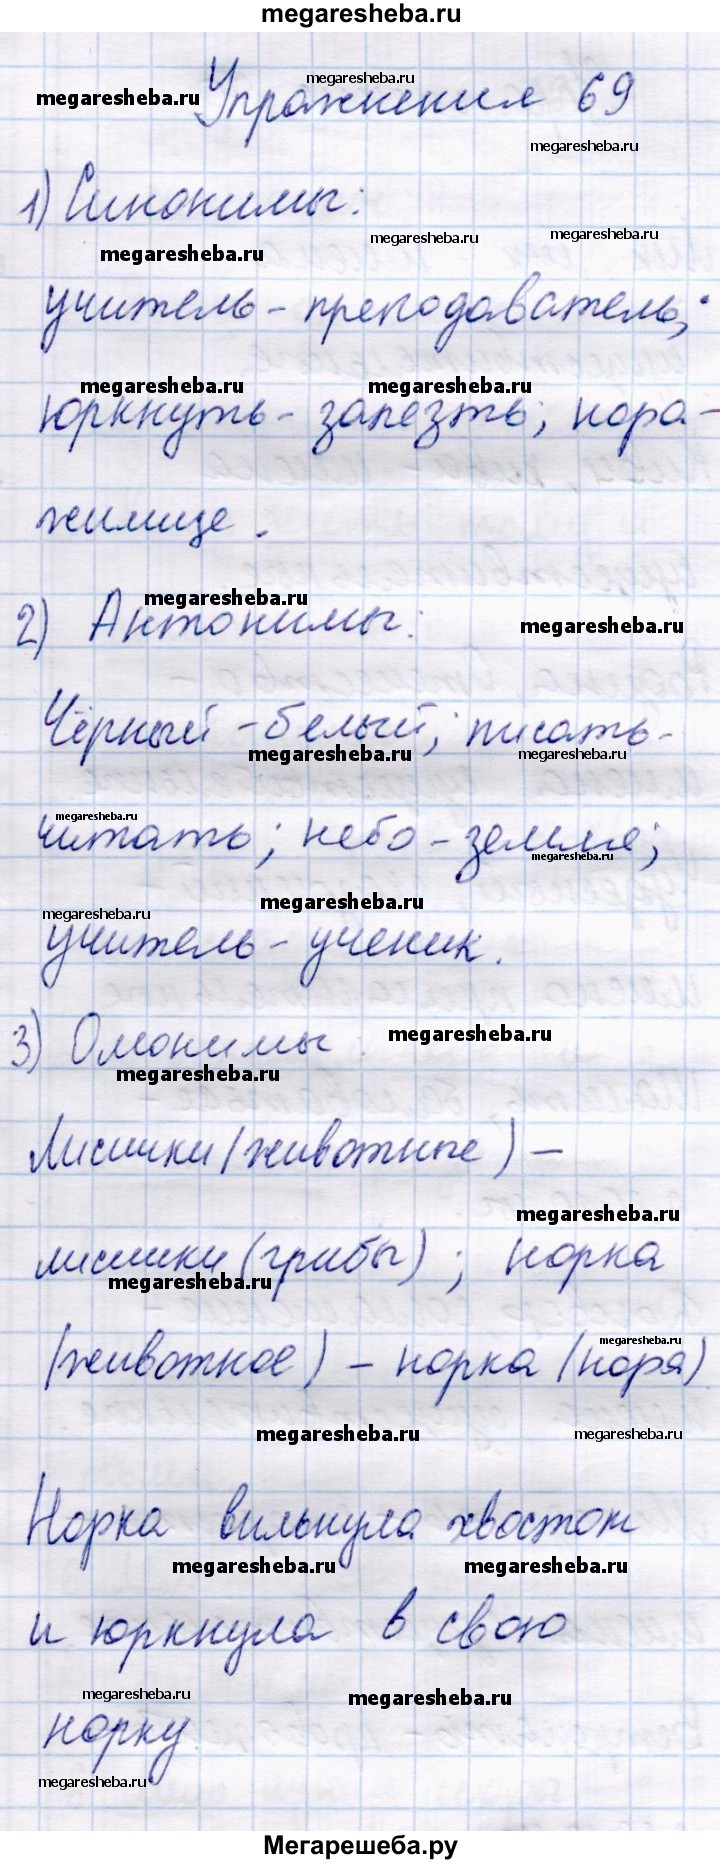 megaresheba.ru
megaresheba.ru
megaresheba.ru
Упражнения 69
megaresheba.ru
1) Синонимы:
megaresheba.ru
megaresheba.ru
megaresheba.ru
учитель - преподаватель;
megaresheba.ru
megaresheba.ru
юркнуть - залезть; нора -
жилище.
megaresheba.ru
2) Антонимы:
megaresheba.ru
Чёрный - белый; писать -
megaresheba.ru
megaresheba.ru
megaresheba.ru
читать; небо - земля;
megaresheba.ru
megaresheba.ru
megaresheba.ru
учитель - ученик.
3) Омонимы:
megaresheba.ru
megaresheba.ru
Лисички (животные) -
megaresheba.ru
лисички (грибы); норка
megaresheba.ru
megaresheba.ru
(животное) - норка (нора)
megaresheba.ru
megaresheba.ru
Норка вильнула хвостом
megaresheba.ru
megaresheba.ru
и юркнула в свою
megaresheba.ru
megaresheba.ru
норку.
megaresheba.ru
Мегарешеба.ру